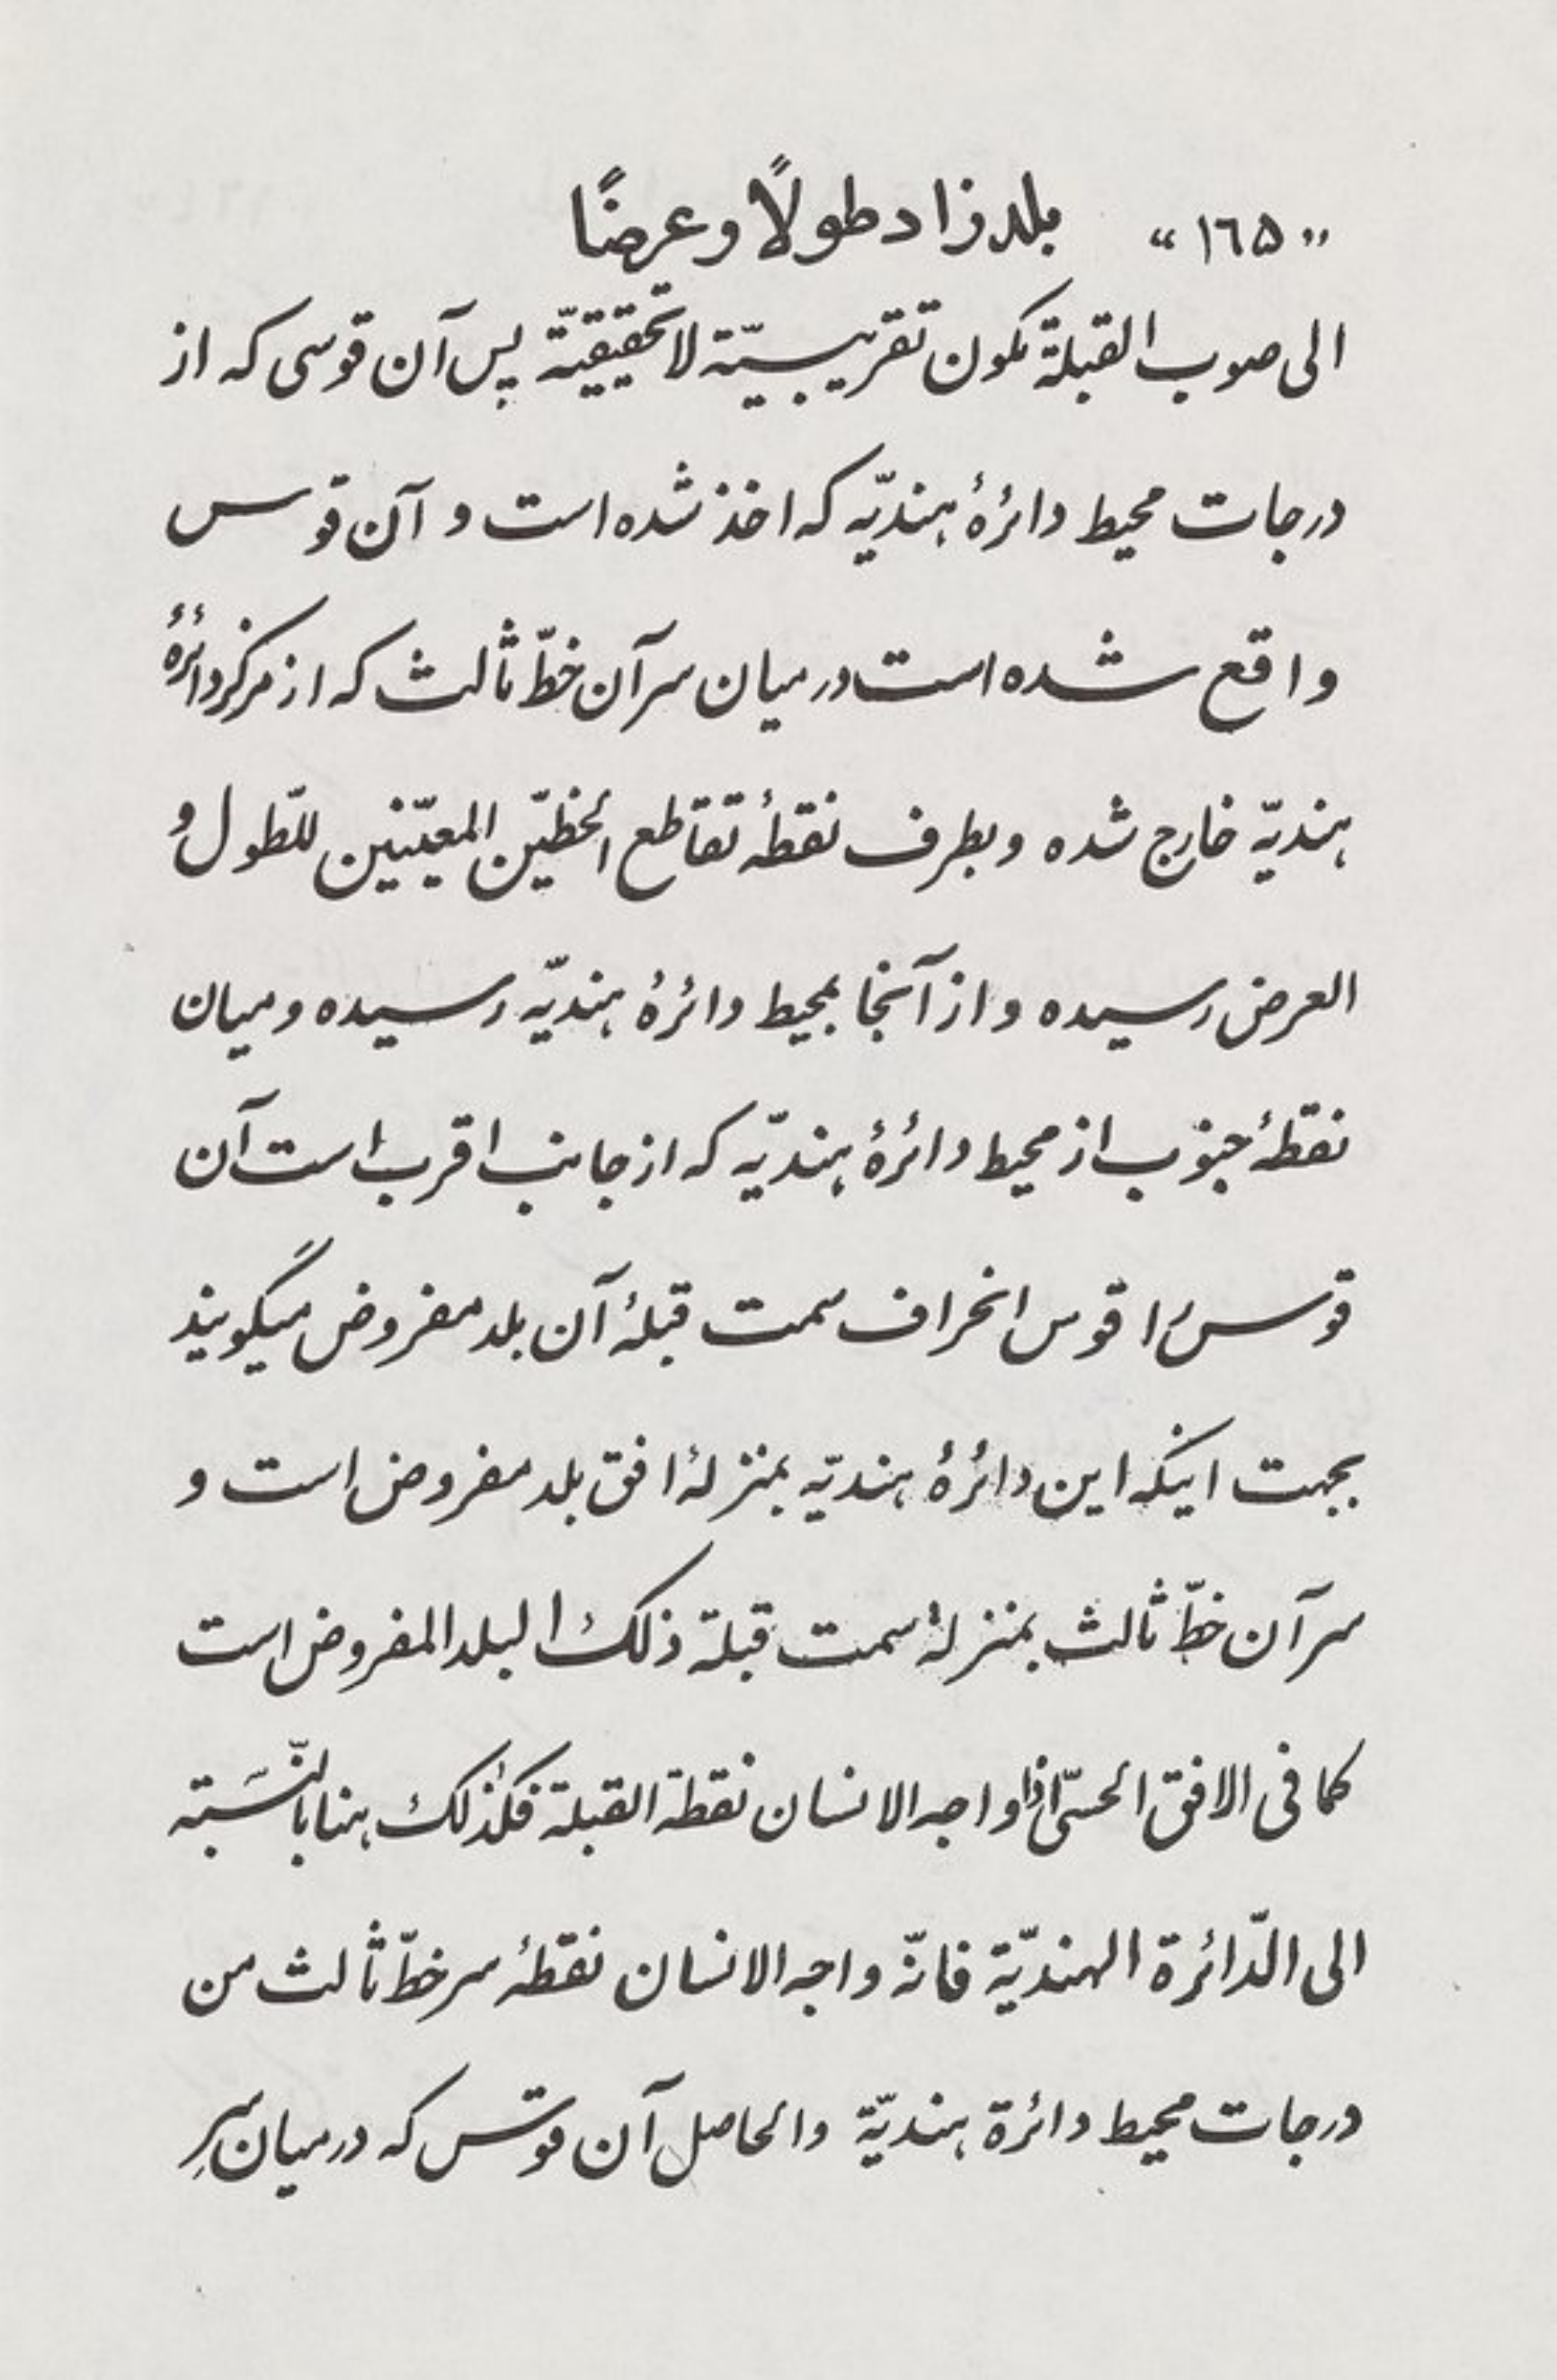 «١٦٥» بلد زاد طولًا و عرضًا
الی صوب القبلة تکون تقریبیّة لا تحقیقیّة پس آن قوسی که از
درجات محیط دائرۀ هندیّه که اخذ شده است و آن قوس
واقع شده است در میان سر آن خطّ ثالث که از مرکز دائرۀ
هندیّه خارج شده و بطرف نقطۀ تقاطع الخطّین المعیّنین للطّول و
العرض رسیده و از آنجا بمحیط دائرۀ هندیّه رسیده و میان
نقطۀ جنوب از محیط دائرۀ هندیّه که از جانب اقرب است آن
قوس را قوس انحراف سمت قبلۀ آن بلد مفروض میگویند
بجهت اینکه این دائرۀ هندیّه بمنزلۀ افق بلد مفروض است و
سر آن خطّ ثالث بمنزلۀ سمت قبلة ذلک البلد المفروض است
کما فی الافق الحسّی اذا واجه الانسان نقطة القبلة فکذلک هنا بالنّسَبته
الی الدّائرة الهندیّة فانّه واجه الانسان نقطۀ سر خطّ ثالث من
درجات محیط دائرة هندیّة والحاصل آن قوس که در میان سرِ